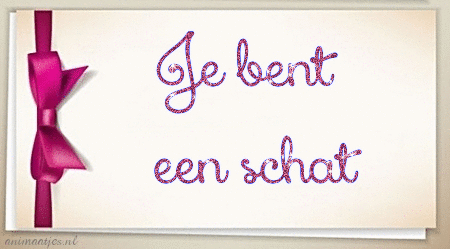 Je bent
een schat
animaatjes.nl